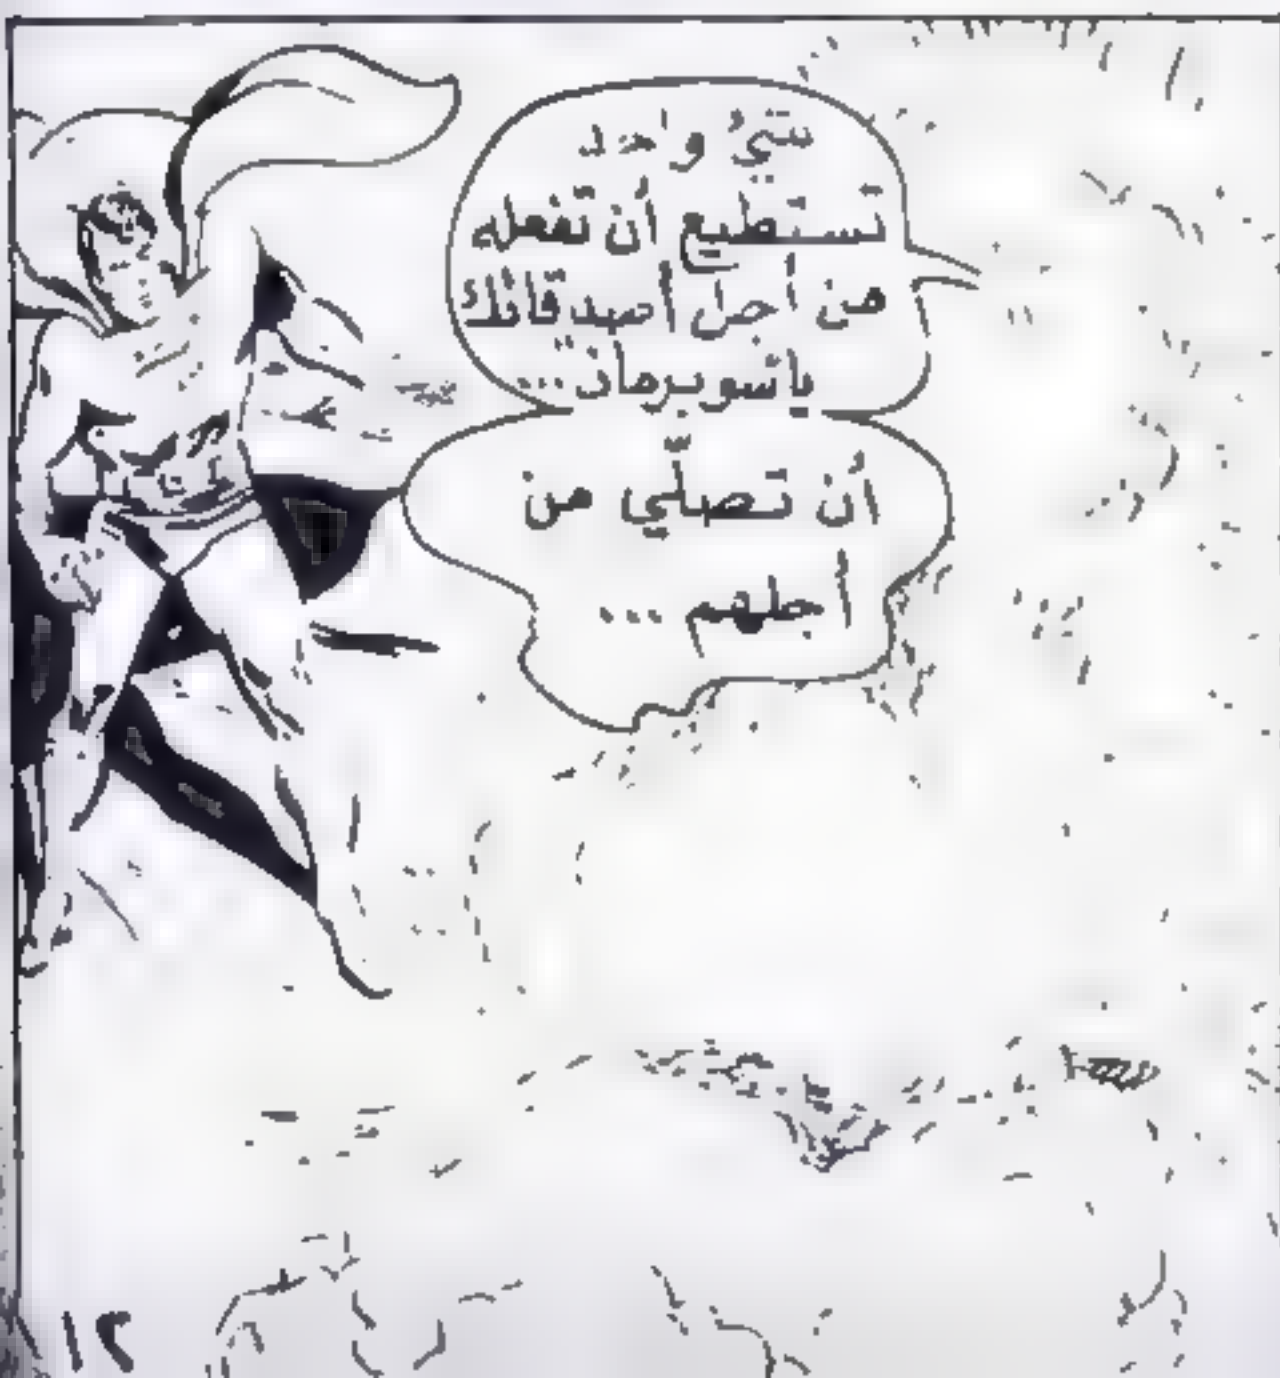 شيءٌ واحد
تستطيع أن تفعله
من أجل أصدقائك
يا سوبرمان...
أن تصلّي من
أجلهم ...
١٢